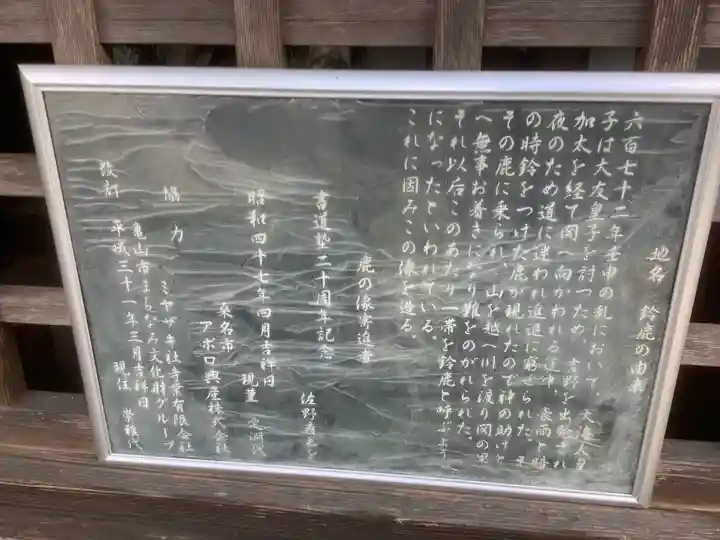 地名 鈴鹿の由来
六百七十二年壬申の乱において、大海人皇
子は大友皇子を討つため、吉野を出発され
加太を経て関へ向かわれる途中、豪雨と暗
夜のため道に迷われ進退に窮せられた。そ
の時鈴をつけた鹿が現れたので神の助けと
その鹿に乗られ、山を越へ川を渡り関の里
へ無事お着きになり難をのがれられた。
それ以后このあたり一帯を鈴鹿と呼ぶよう
になったといわれている。
これに因みこの像を造る。
鹿の像寄進者
書道塾二十周年記念 佐野
昭和四十七年四月吉祥日 現董
桑名市
アポロ興産株式会社
協力 ミヤザキ社寺業有限会社
亀山市まちなみ文化財グループ
改都 平成三十一年三月吉祥日 現住